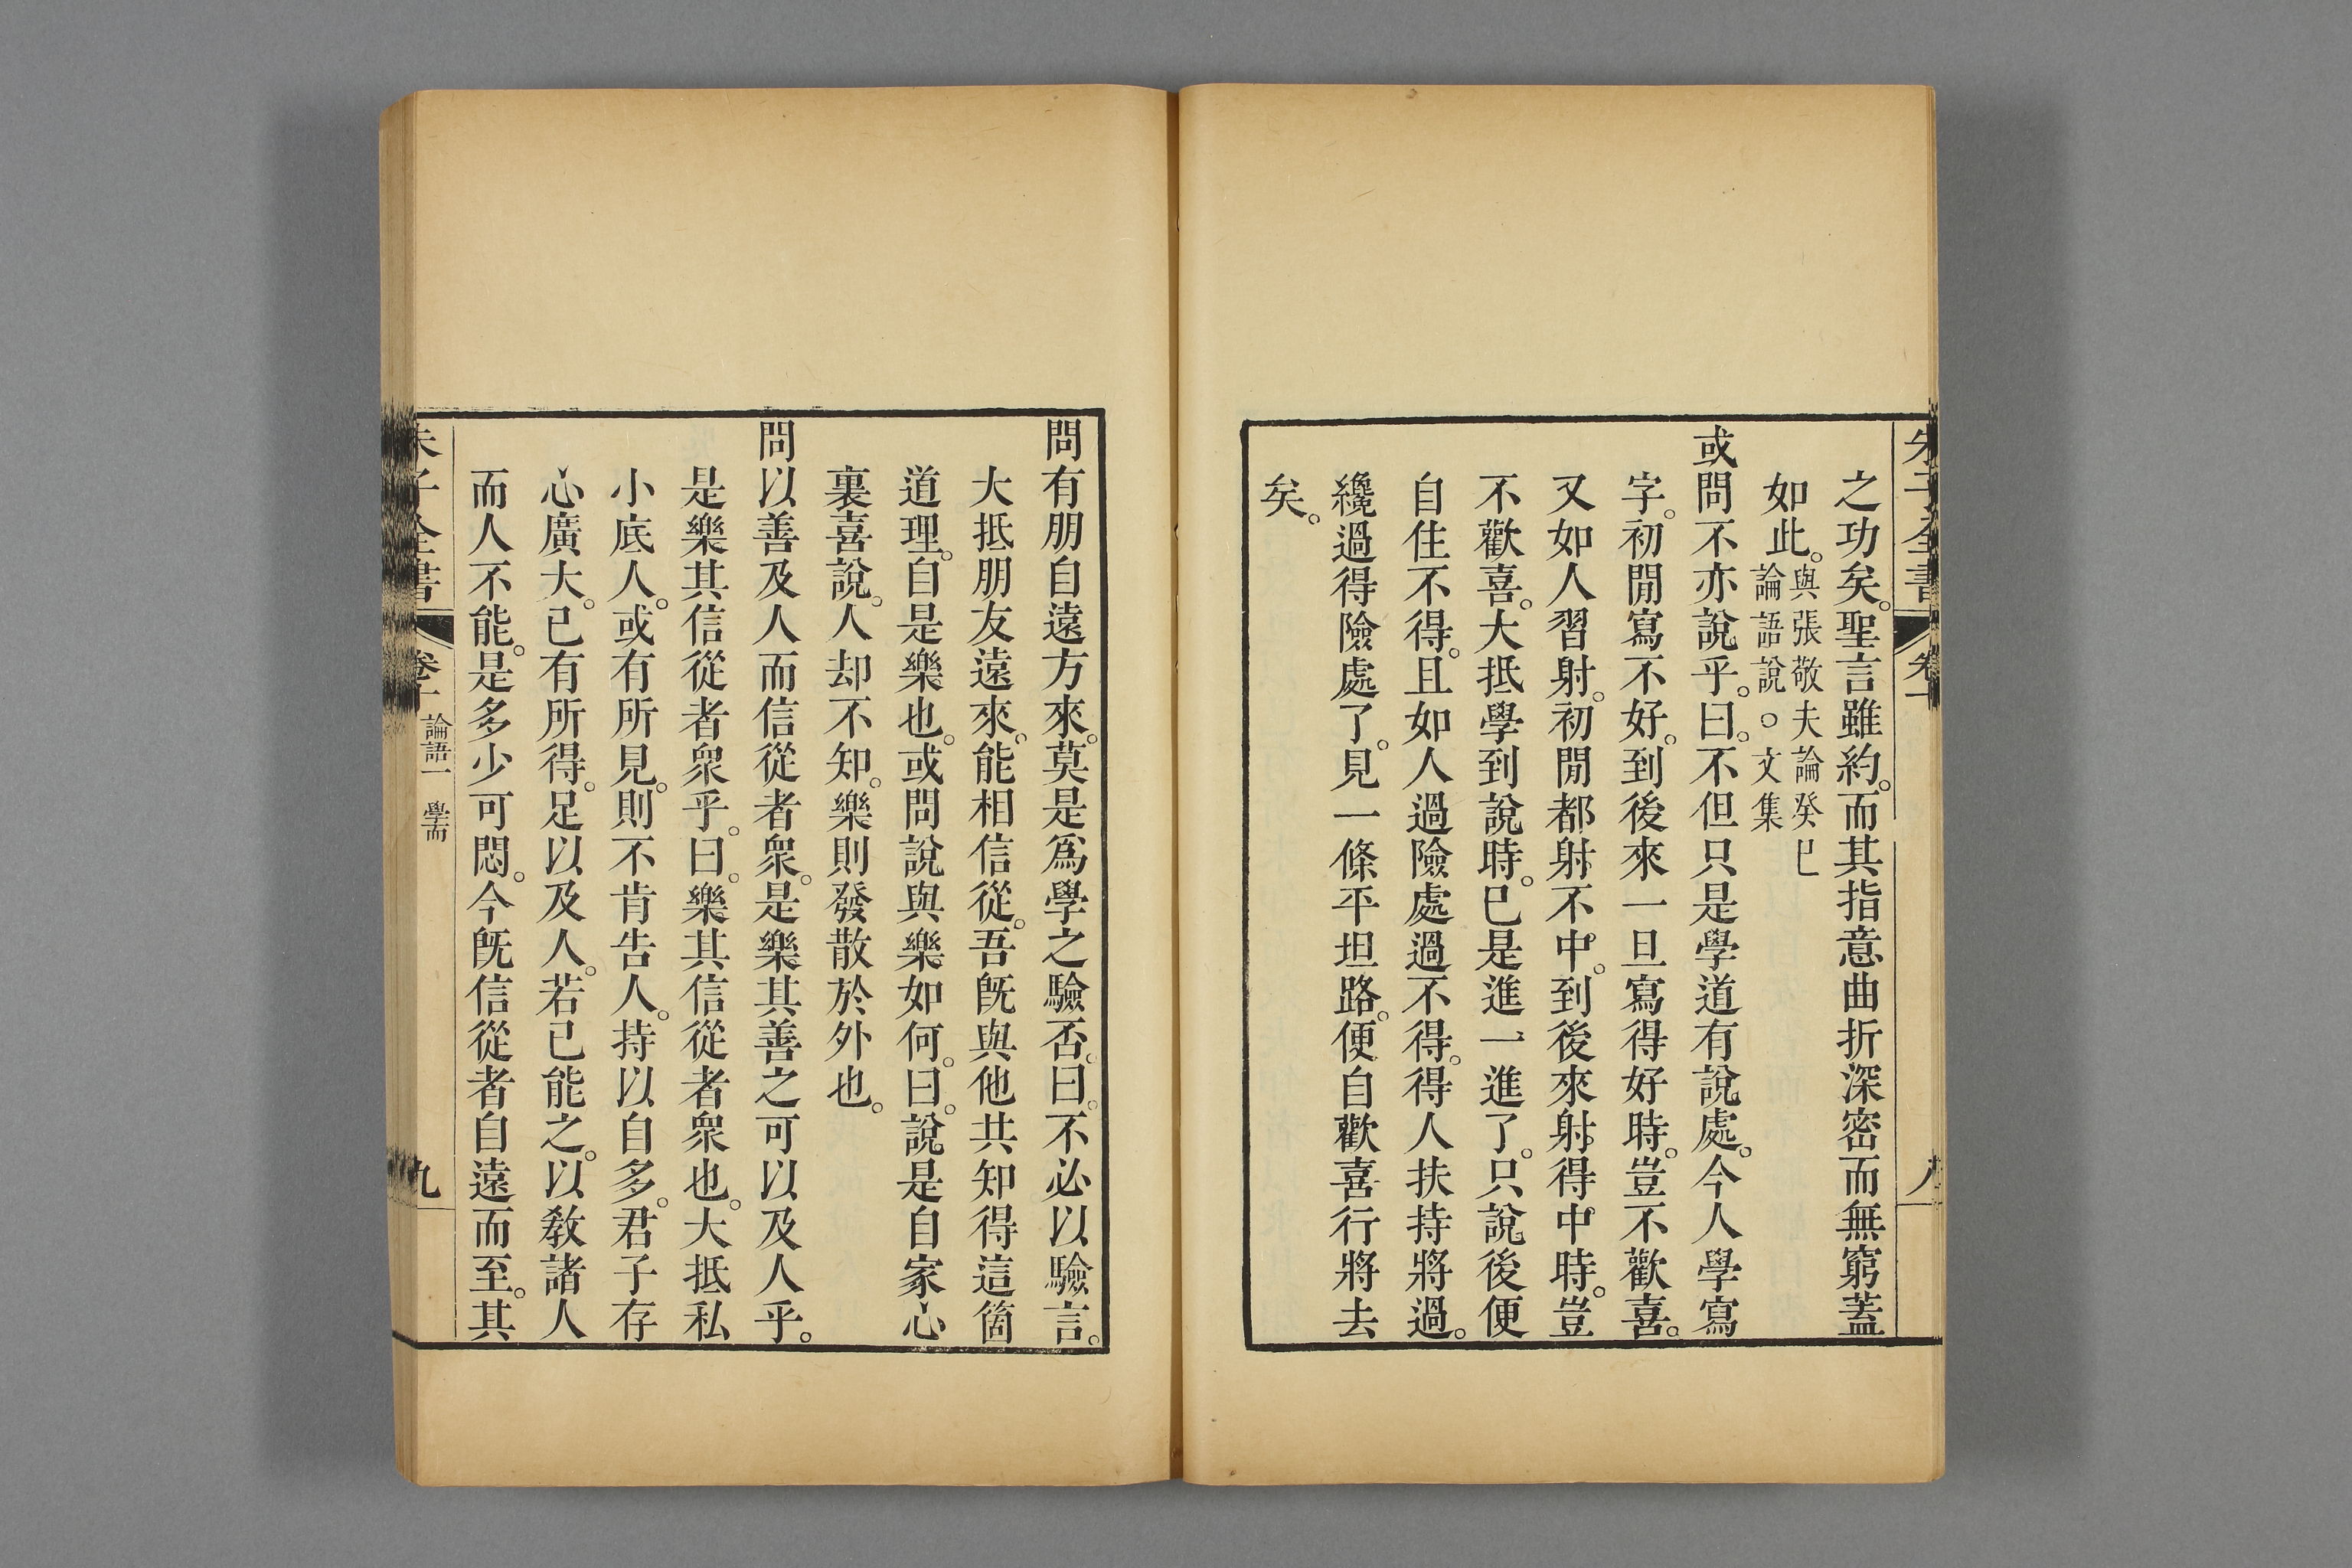 朱子全書 卷十 八
之功矣。聖言雖約。而其指意曲折深密而無窮蓋
如此。與張敬夫論癸巳
論語說。○文集
或問不亦說乎。曰。不但只是學道有說處。今人學寫
字。初閒寫不好。到後來一旦寫得好時。豈不歡喜。
又如人習射。初閒都射不中。到後來射得中時。豈
不歡喜。大抵學到說時。已是進一進了。只說後便
自住不得。且如人過險處過不得。得人扶持將過。
纔過得險處了。見一條平坦路。便自歡喜行將去
矣。
問有朋自遠方來。莫是爲學之驗否。曰。不必以驗言。
大抵朋友遠來。能相信從。吾旣與他共知得這箇
道理。自是樂也。或問說與樂如何。曰。說是自家心
裏喜說。人却不知。樂則發散於外也。
問以善及人而信從者衆。是樂其善之可以及人乎。
是樂其信從者衆乎。曰。樂其信從者衆也。大抵私
小底人。或有所見。則不肯告人。持以自多。君子存
心廣大。已有所得。足以及人。若已能之。以敎諸人
而人不能。是多少可悶。今旣信從者自遠而至。其
朱子全書 卷十 論語一 學而 九